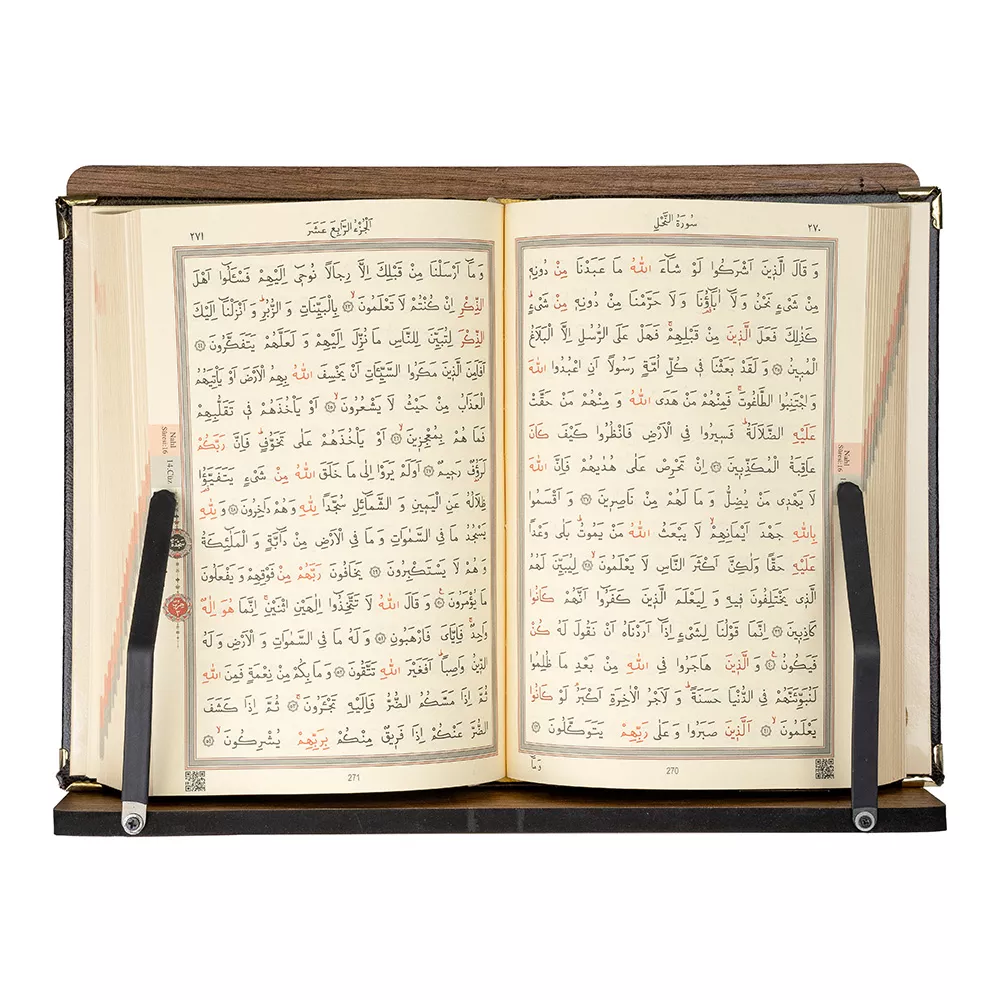 سُورَةُ النَّحْلِ ٢٧٠
وَ قَالَ الَّذٖينَ اَشْرَكُوا لَوْ شَٓاءَ اللّٰهُ مَا عَبَدْنَا مِنْ دُونِهٖ
مِنْ شَیْءٍ نَحْنُ وَ لَٓا اٰبَٓاؤُنَا وَ لَا حَرَّمْنَا مِنْ دُونِهٖ مِنْ شَیْءٍؕ
كَذٰلِكَ فَعَلَ الَّذٖينَ مِنْ قَبْلِهِمْۚ فَهَلْ عَلَى الرُّسُلِ اِلَّا الْبَلَاغُ
الْمُبٖينُ ﴿٣٥﴾ وَ لَقَدْ بَعَثْنَا فٖی كُلِّ اُمَّةٍ رَسُولًا اَنِ اعْبُدُوا اللّٰهَ
وَ اجْتَنِبُوا الطَّاغُوتَۚ فَمِنْهُمْ مَنْ هَدَى اللّٰهُ وَ مِنْهُمْ مَنْ حَقَّتْ
عَلَيْهِ الضَّلَالَةُؕ فَسٖيرُوا فِی الْاَرْضِ فَانْظُرُوا كَيْفَ كَانَ
عَاقِبَةُ الْمُكَذِّبٖينَ ﴿٣٦﴾ اِنْ تَحْرِصْ عَلٰى هُدٰيهُمْ فَاِنَّ اللّٰهَ
لَا يَهْدٖی مَنْ يُضِلُّ وَ مَا لَهُمْ مِنْ نَاصِرٖينَ ﴿٣٧﴾ وَ اَقْسَمُوا
بِاللّٰهِ جَهْدَ اَيْمَانِهِمْۙ لَا يَبْعَثُ اللّٰهُ مَنْ يَمُوتُؕ بَلٰى وَعْدًا
عَلَيْهِ حَقًّا وَلٰكِنَّ اَكْثَرَ النَّاسِ لَا يَعْلَمُونَۙ ﴿٣٨﴾ لِيُبَيِّنَ لَهُمُ
الَّذٖی يَخْتَلِفُونَ فٖيهِ وَ لِيَعْلَمَ الَّذٖينَ كَفَرُٓوا اَنَّهُمْ كَانُوا
كَاذِبٖينَ ﴿٣٩﴾ اِنَّمَا قَوْلُنَا لِشَیْءٍ اِذَٓا اَرَدْنَاهُ اَنْ نَقُولَ لَهُ كُنْ
فَيَكُونُۚ ﴿٤٠﴾ وَ الَّذٖينَ هَاجَرُوا فِی اللّٰهِ مِنْ بَعْدِ مَا ظُلِمُوا
لَنُبَوِّئَنَّهُمْ فِی الدُّنْيَا حَسَنَةًؕ وَ لَاَجْرُ الْاٰخِرَةِ اَكْبَرُۢ لَوْ كَانُوا
يَعْلَمُونَۙ ﴿٤١﴾ اَلَّذٖينَ صَبَرُوا وَ عَلٰى رَبِّهِمْ يَتَوَكَّلُونَ ﴿٤٢﴾
وَ مَٓا
270
Nahl
Sûresi:16
اَلْجُزْءُ الرَّابِعَ عَشَرَ ٢٧١
وَ مَٓا اَرْسَلْنَا مِنْ قَبْلِكَ اِلَّا رِجَالًا نُوحٖٓی اِلَيْهِمْ فَسْـَٔلُٓوا اَهْلَ
الذِّكْرِ اِنْ كُنْتُمْ لَا تَعْلَمُونَۙ ﴿٤٣﴾ بِالْبَيِّنَاتِ وَ الزُّبُرِؕ وَ اَنْزَلْنَٓا اِلَيْكَ
الذِّكْرَ لِتُبَيِّنَ لِلنَّاسِ مَا نُزِّلَ اِلَيْهِمْ وَ لَعَلَّهُمْ يَتَفَكَّرُونَ ﴿٤٤﴾
اَفَاَمِنَ الَّذٖينَ مَكَرُوا السَّيِّـَٔاتِ اَنْ يَخْسِفَ اللّٰهُ بِهِمُ الْاَرْضَ اَوْ يَاْتِيَهُمُ
الْعَذَابُ مِنْ حَيْثُ لَا يَشْعُرُونَۙ ﴿٤٥﴾ اَوْ يَاْخُذَهُمْ فٖی تَقَلُّبِهِمْ
فَمَا هُمْ بِمُعْجِزٖينَۙ ﴿٤٦﴾ اَوْ يَاْخُذَهُمْ عَلٰى تَخَوُّفٍؕ فَاِنَّ رَبَّكُمْ
لَرَؤُفٌ رَحٖيمٌ ﴿٤٧﴾ اَوَلَمْ يَرَوْا اِلٰى مَا خَلَقَ اللّٰهُ مِنْ شَیْءٍ يَتَفَيَّؤُا
ظِلَالُهُ عَنِ الْيَمٖينِ وَ الشَّمَٓائِلِ سُجَّدًا لِلّٰهِ وَ هُمْ دَاخِرُونَ ﴿٤٨﴾ وَ لِلّٰهِ
يَسْجُدُ مَا فِی السَّمٰوَاتِ وَ مَا فِی الْاَرْضِ مِنْ دَٓابَّةٍ وَ الْمَلٰٓئِكَةُ
وَ هُمْ لَا يَسْتَكْبِرُونَ ﴿٤٩﴾ يَخَافُونَ رَبَّهُمْ مِنْ فَوْقِهِمْ وَ يَفْعَلُونَ
مَا يُؤْمَرُونَ ﴿٥٠﴾ وَ قَالَ اللّٰهُ لَا تَتَّخِذُٓوا اِلٰهَيْنِ اثْنَيْنِۚ اِنَّمَا هُوَ اِلٰهٌ
وَاحِدٌۚ فَاِيَّایَ فَارْهَبُونِ ﴿٥١﴾ وَ لَهُ مَا فِی السَّمٰوَاتِ وَ الْاَرْضِ وَ لَهُ
الدّٖينُ وَاصِبًاؕ اَفَغَيْرَ اللّٰهِ تَتَّقُونَ ﴿٥٢﴾ وَ مَا بِكُمْ مِنْ نِعْمَةٍ فَمِنَ اللّٰهِ
ثُمَّ اِذَا مَسَّكُمُ الضُّرُّ فَاِلَيْهِ تَجْـَٔرُونَۚ ﴿٥٣﴾ ثُمَّ اِذَا كَشَفَ
الضُّرَّ عَنْكُمْ اِذَا فَرٖيقٌ مِنْكُمْ بِرَبِّهِمْ يُشْرِكُونَۙ ﴿٥٤﴾
271
Nahl
Sûresi:16
14.Cüz